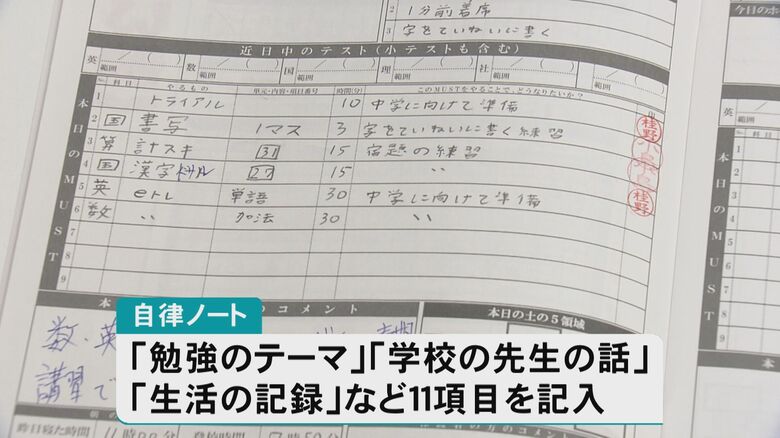 今日のホ
2 1分前着席
3 字をていねいに書く
近日中のテスト(小テストも含む)
英 / ( ) 数 / ( ) 国 / ( ) 理 / ( ) 社 / ( ) / ( )
範囲 範囲 範囲 範囲 範囲 範囲
No. 科目 やるもの 単元・内容・項目番号 時間(分) このMUSTをやることで、どうなりたいか? 印
本日のMUST
1 トライアル 10 中学に向けて準備
2 国 書写 1マス 3 字をていねいに書く練習 桂野
3 算 計スキ 31 15 宿題の練習
4 国 漢字ドリル 27 15 〃
5 英 eトレ 単語 30 中学に向けて準備 桂野
6 数 〃 加法 30 〃
7
8
9
本日のM
のコメント
本日の土の5領域
数、英
講習で
自律ノート
「勉強のテーマ」「学校の先生の話」
「生活の記録」など11項目を記入
昨日寝た時間 11時00分 登校時間 7時50分